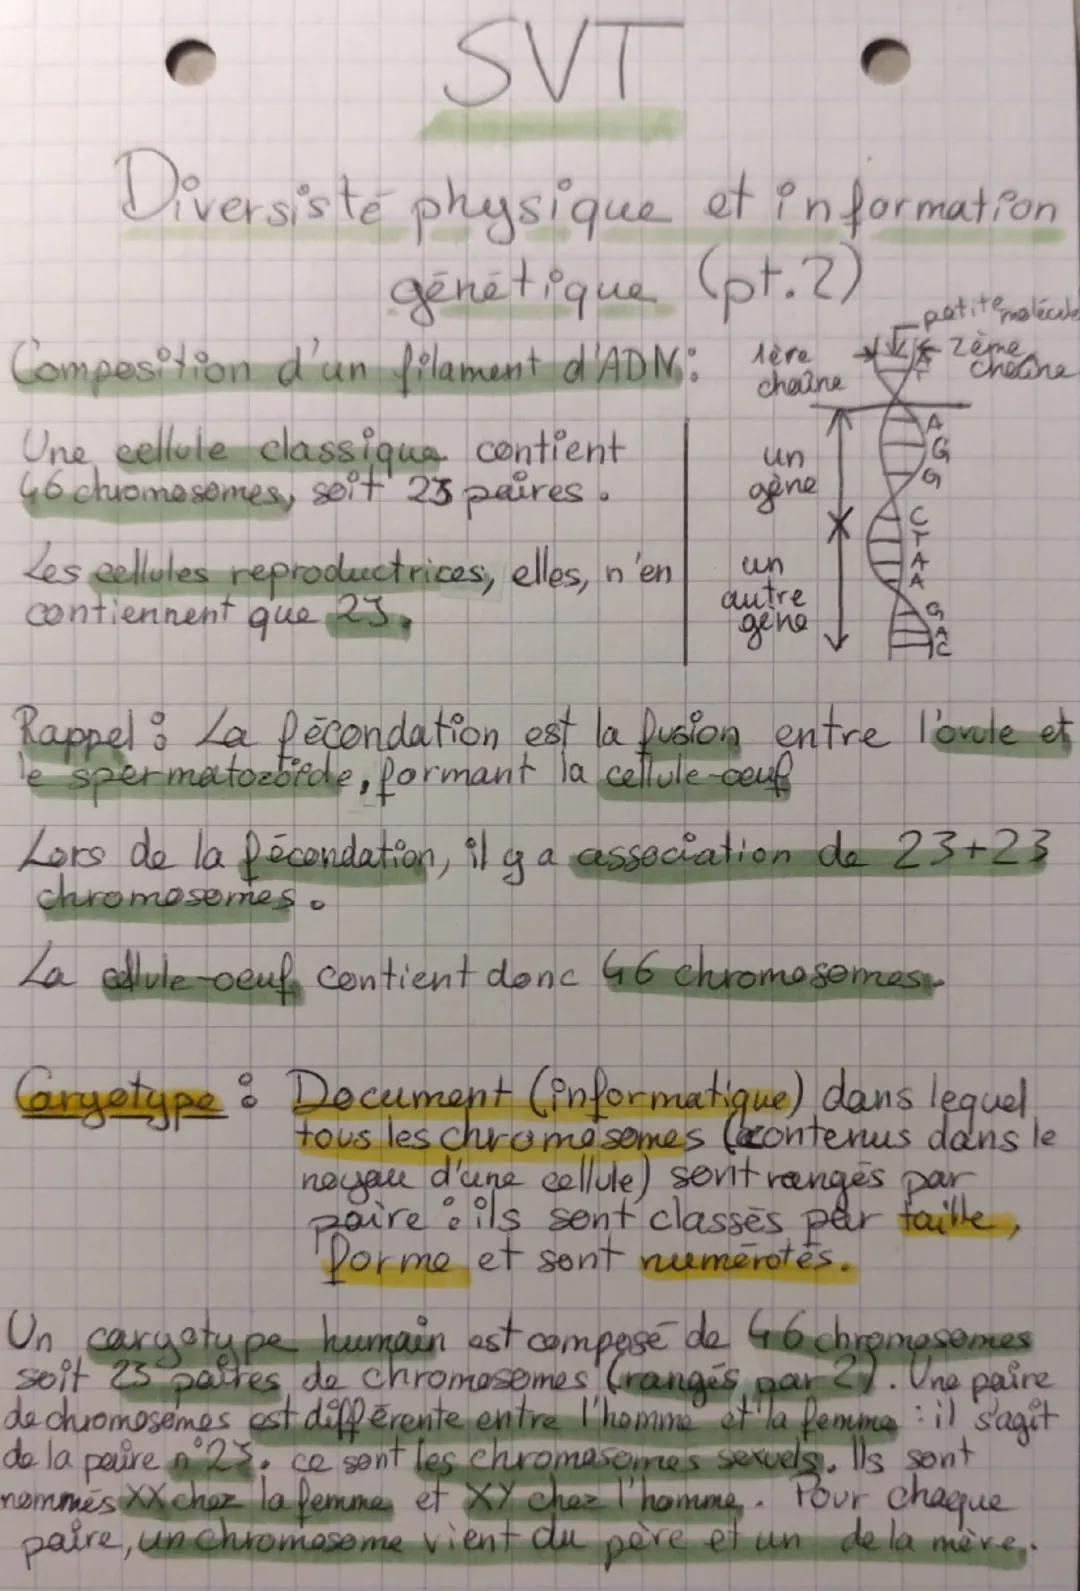 SVT
Diversisté physique et information
génétique (pt.2)
petite molécule
Composition d'un filament d'ADN:
1ère
chaîne
2ème
chaîne
Une cellule classique contient
46 chromosomes, soit 23 paires.
Les cellules reproductrices, elles, n'en
contiennent que 23.
un
gène
un
autre
gène
A
G
G
C
T
A
A
G
A
C
Rappel : La fécondation est la fusion entre l'ovule et
le spermatozoïde, formant la cellule-oeuf
Lors de la fécondation, il y a association de 23+23
chromosomes.
La cellule-oeuf contient donc 46 chromosomes.
Caryotype : Document (informatique) dans lequel
tous les chromosomes (contenus dans le
noyau d'une cellule) sont rangés par
paire : ils sont classés par taille,
forme et sont numérotés.
Un caryotype humain est composé de 46 chromosomes
soit 23 paires de chromosomes (rangés par 2). Une paire
de chromosomes est différente entre l'homme et la femme : il s'agit
de la paire n°23. ce sont les chromosomes sexuels. Ils sont
nommés XX chez la femme et XY chez l'homme. Pour chaque
paire, un chromosome vient du père et un de la mère.